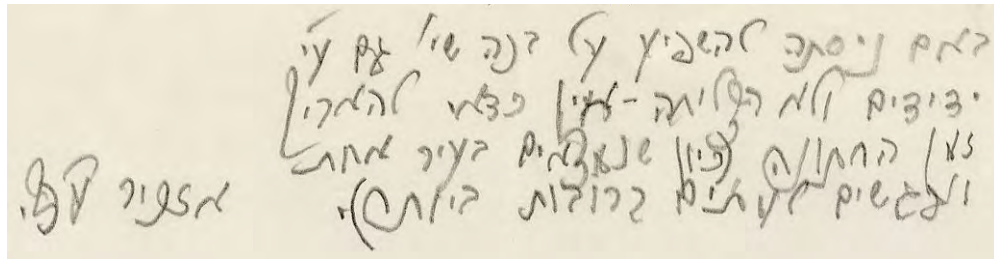 באם ניסתה להשפיע על בנה שי' גם ע"י
ידידים ולא הצליחה - אין כדאי להאריך
זמן החתונה כיון שנמצאים בעיר אחת
ונפגשים לעתים קרובות ביותר.
אזכיר עה"צ